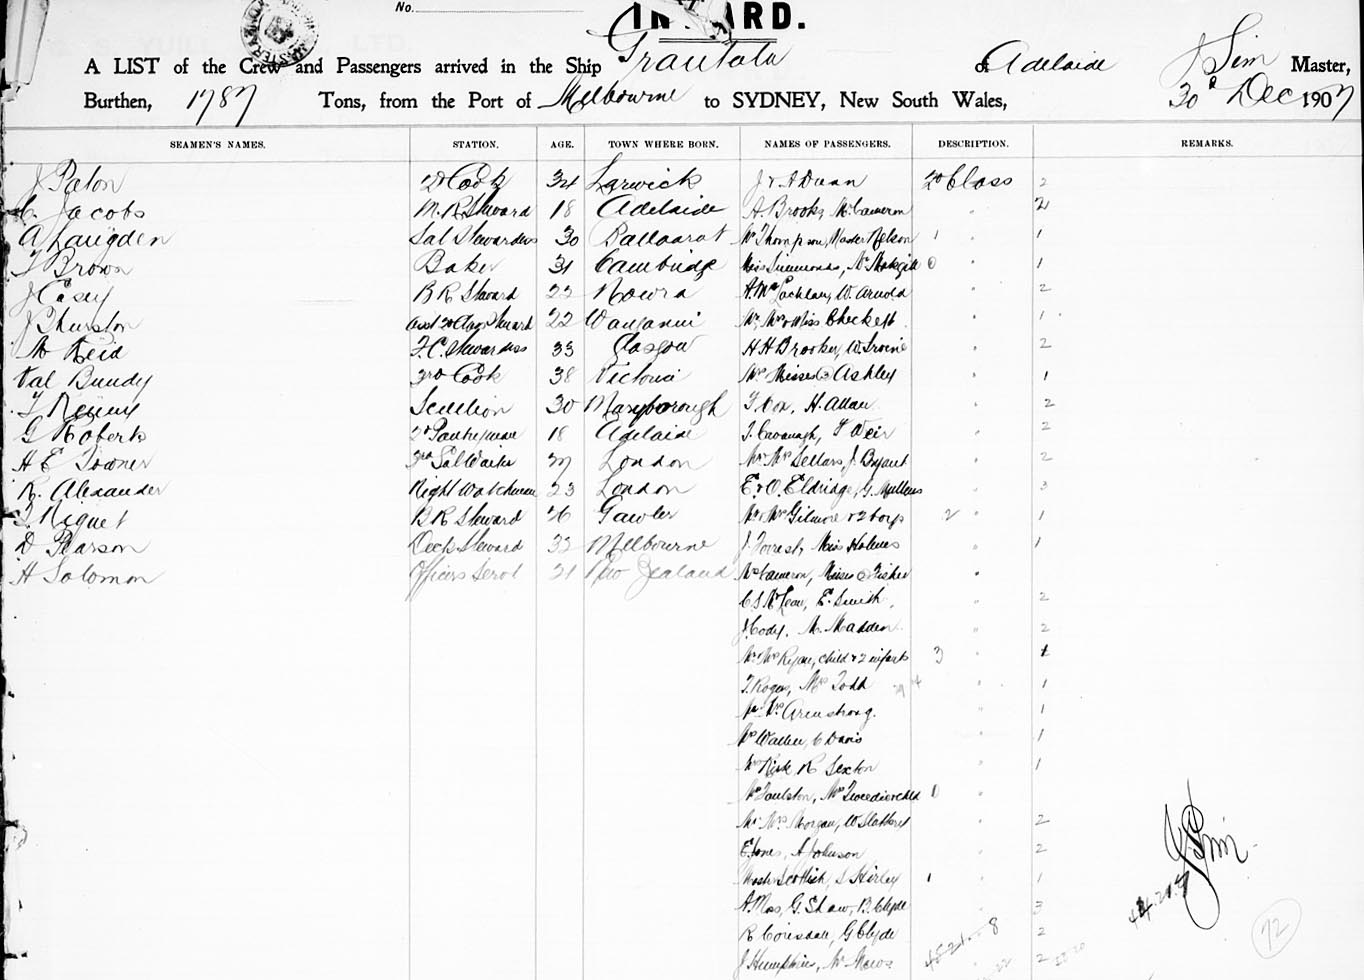 No.
INWARD.
A LIST of the Crew and Passengers arrived in the Ship Grantala of Adelaide J Sim Master,
Burthen, 1787 Tons, from the Port of Melbourne to SYDNEY, New South Wales, 30 Dec 1907
SEAMEN'S NAMES. STATION. AGE. TOWN WHERE BORN. NAMES OF PASSENGERS. DESCRIPTION. REMARKS.
J Paton 2d Cook 34 Larwick J & A Dunn 2d Class 2
C. Jacobs M. R Steward 18 Adelaide A Brooks, Mr Cameron " 2
A Langden Sal Stewardess 30 Ballaarat Mr Thompson, Master Nelson 1 " 1
T Brown Baker 31 Cambridge Miss Simmonds, 0 " 1
J Casey B R Steward 22 Nowra A. McLachlan, W. Arnold " 2
J Thurston 22 Wanganui Mr Mrs & Miss Checkett " 1
Reid F.C. Stewardess 33 Glasgow H H Brooker, W Irvine " 2
Val Bundy 3rd Cook 38 Victoria Mrs Misses (2) Ashley " 1
T Kenny Scullion 30 Maryborough T Cox, H. Allan " 2
G Roberts 2d Pantryman 18 Adelaide T. Cavanagh, T Weir " 2
H E Towner 3rd Sal Waiter 27 London Mr Mrs Sellars, J. Bryant " 2
R. Alexander Night Watchman 23 London E & O. Eldridge, G. Mullens " 3
T. Niquet B R Steward 26 Gawler Mr Mrs Gilmore & 2 boys 2 " 1
D Pearson Deck Steward 32 Melbourne J Forrest, Miss Holmes " 1
H Solomon Officers Servt 21 New Zealand Mrs Cameron, Misses (2) Fisher "
C S McLean, E. Smith, " 2
J Cody, M. Madden " 2
Mr Mrs Ryan, child & 2 infants 3 " 1
T. Rogers, Mrs Todd " 1
Mr Mrs Armstrong. " 1
Mrs Waller, C Davis " 1
Mrs Kirk, R Sexton " 1
Mrs Poulston, Mrs Tweedie & child "
Mr Mrs Morgan, W Slattery " 2
E Jones, A Johnson " 2
Master Scottish, S Shirley 1 " 1
A. Moss, G. Shaw, B. Clyde " 3
R Corisdale, G Clyde " 2
J Humphries, " 2
J. Sim
72